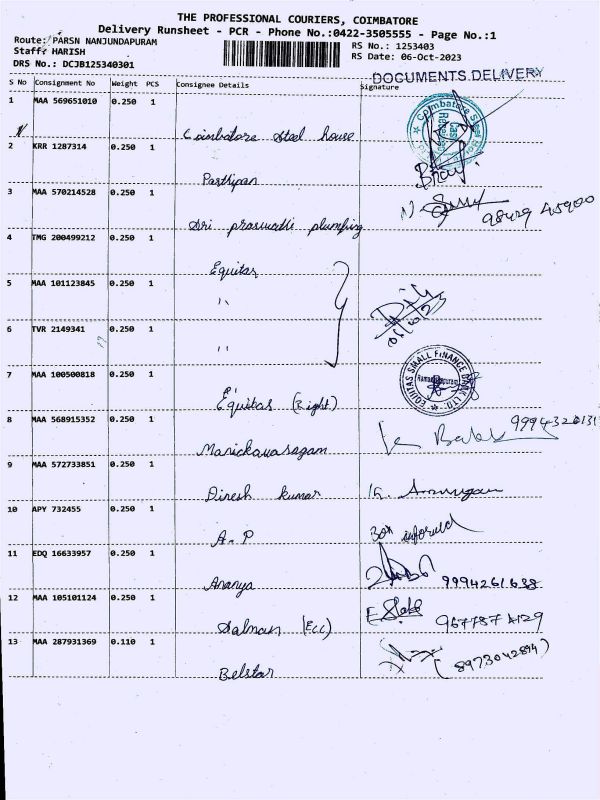 THE PROFESSIONAL COURIERS, COIMBATORE
Delivery Runsheet - PCR - Phone No.:0422-3505555 - Page No.:1
Route: PARSN NANJUNDAPURAM
Staff: HARISH
DRS No.: DCJB125340301
RS No.: 1253403
RS Date: 06-Oct-2023
DOCUMENTS DELIVERY
S No Consignment No Weight PCS Consignee Details Signature
1 MAA 569651010 0.250 1
Coimbatore Steel house
2 KRR 1287314 0.250 1
Parthipan
3 MAA 570214528 0.250 1
98429 45900
Sri plumbing
4 TMG 200499212 0.250 1
Equitas
5 MAA 101123845 0.250 1
"
6 TVR 2149341 0.250 1
"
7 MAA 100500818 0.250 1
EQUITAS SMALL FINANCE BANK LTD.
Equitas (Right)
8 MAA 568915352 0.250 1
Manickavasagam
9 MAA 572733851 0.250 1
Dinesh kumar
10 APY 732455 0.250 1
A.P
11 EDQ 16633957 0.250 1
Ananya
9994261638
12 MAA 105101124 0.250 1
Salman (Ecc)
13 MAA 287931369 0.110 1
(8973042894)
Belstar